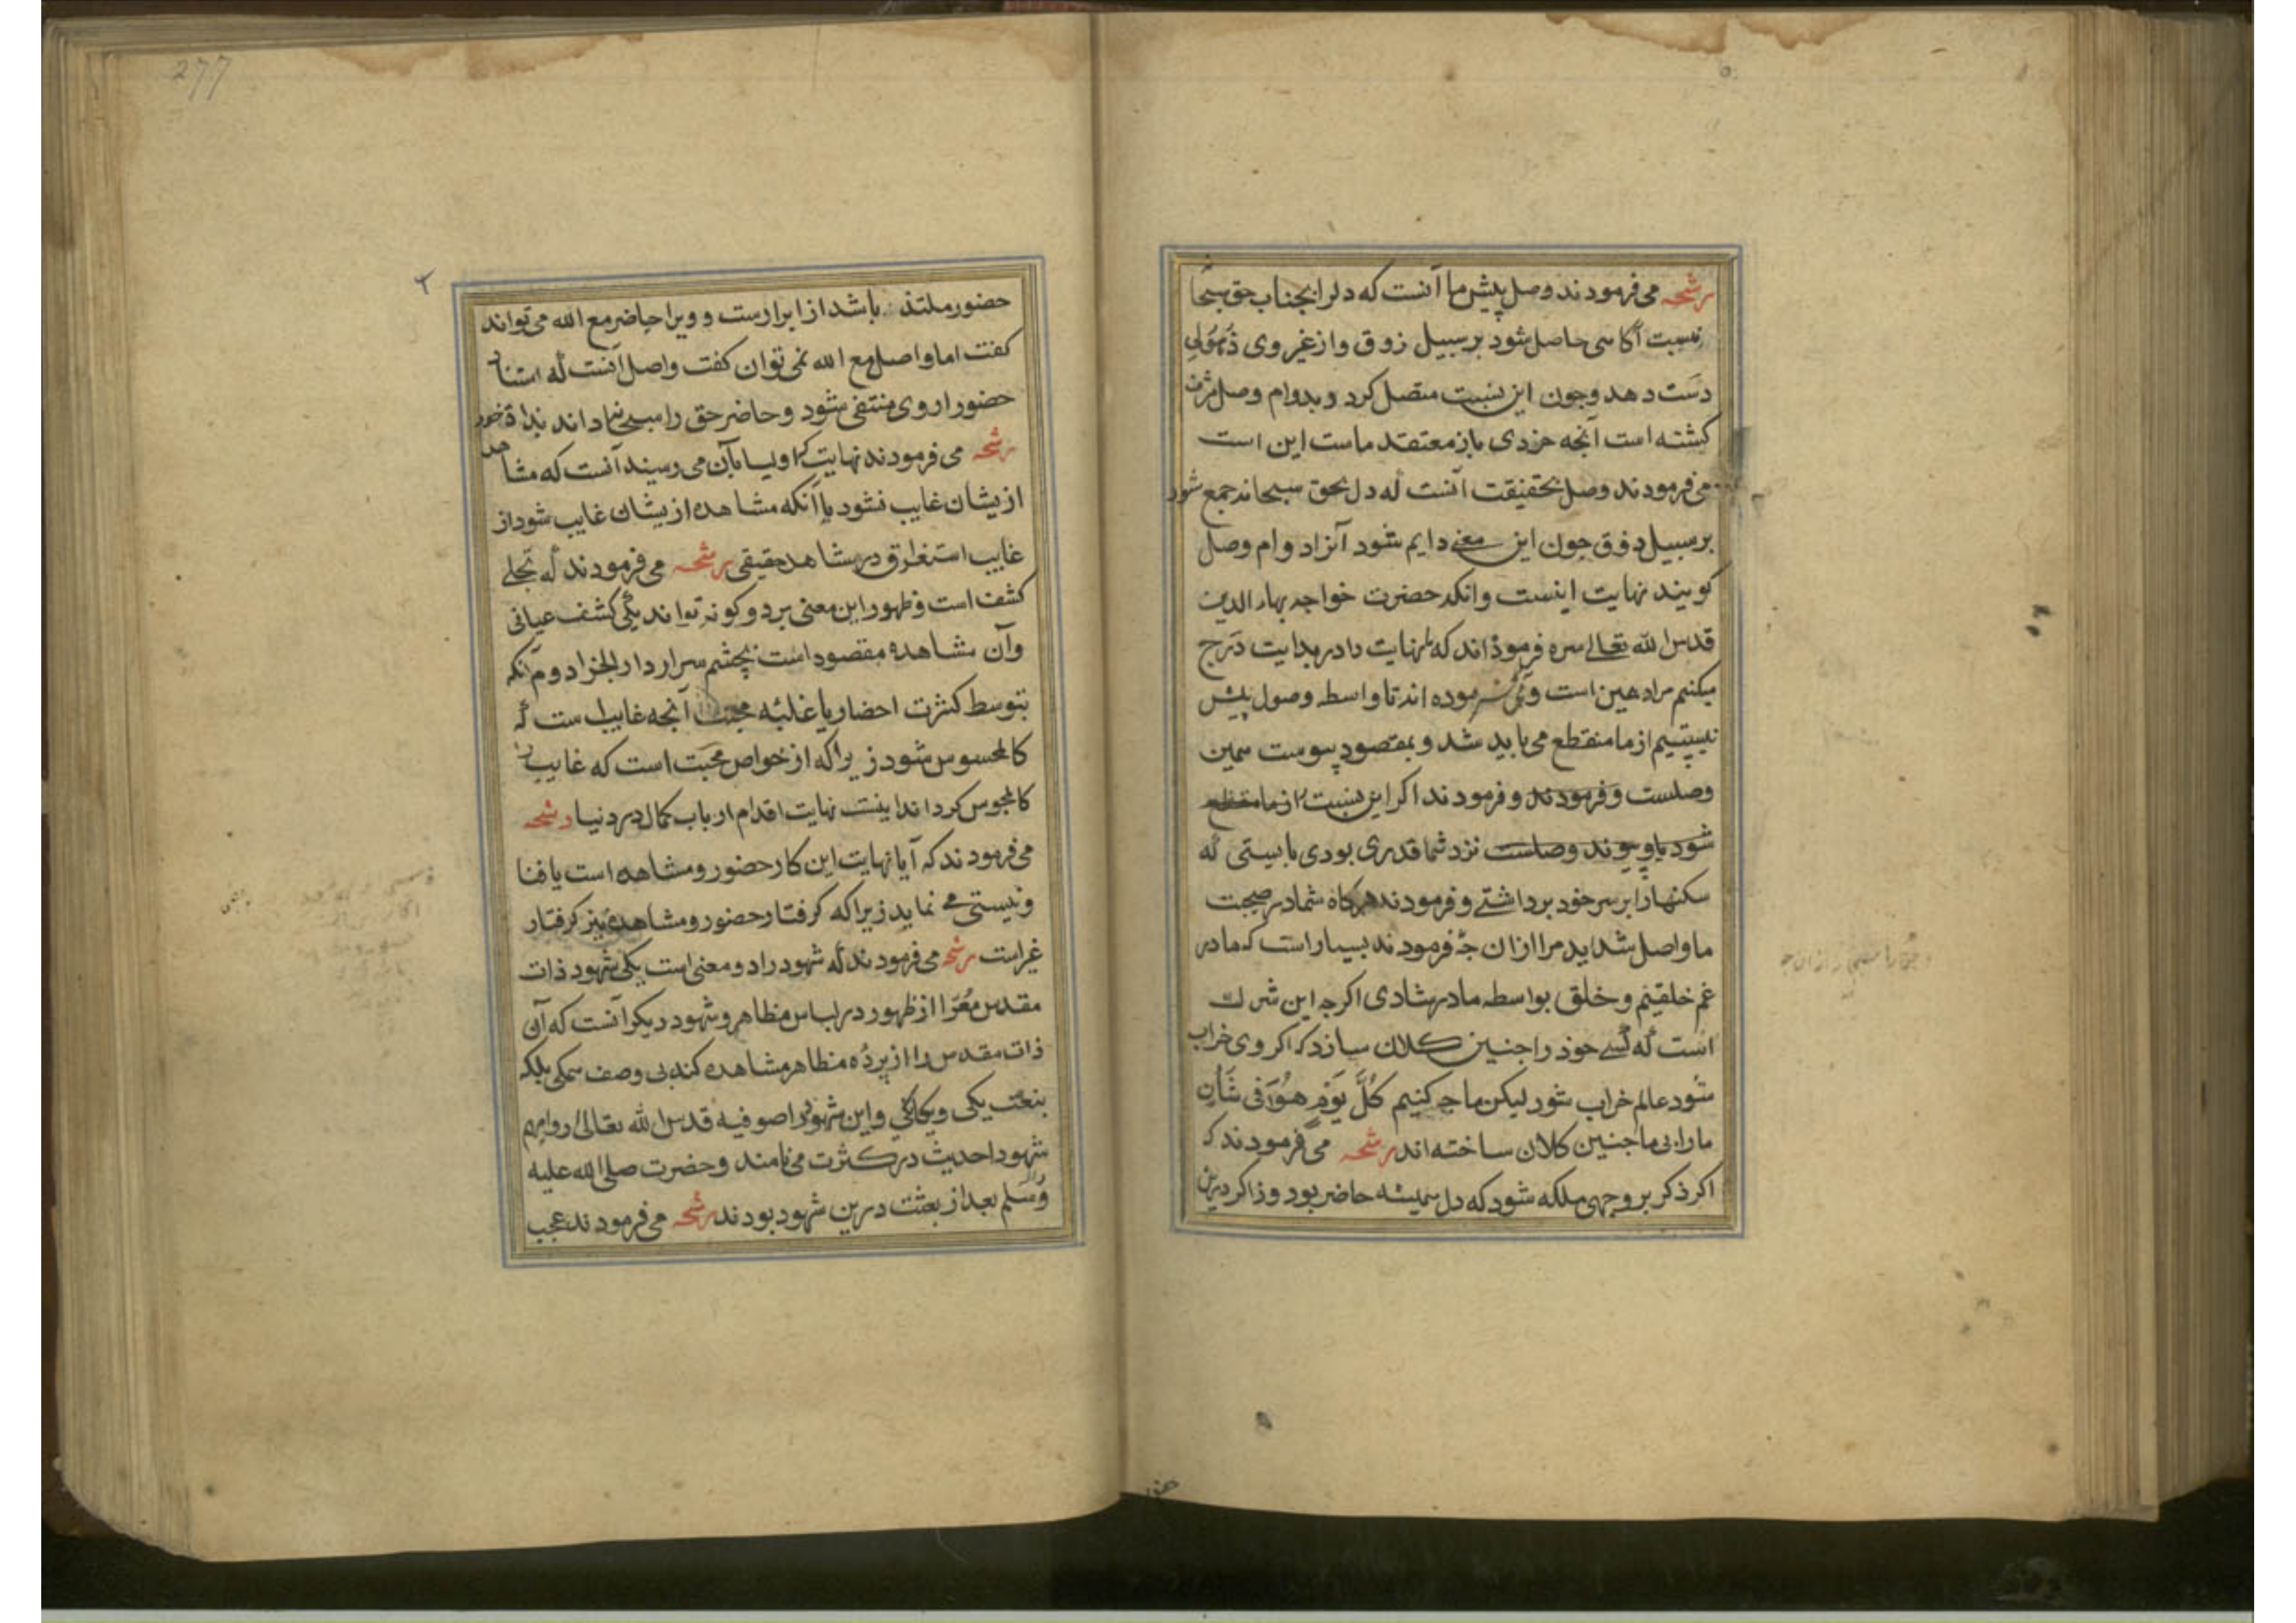 رشحه می فرمودند وصل پیش ما آنست که دلرا بجناب حق سبحا
نسبت آگاهی حاصل شود بر سبیل زوق و از غیر وی ذُهُولی
دست دهد و چون این نسبت متصل کرد و بدوام وصل مشرف
کشته است آنچه خردی باز معتقد ماست این است
می فرمودند وصل بحقیقت آنست که دل بحق سبحانه جمع شود
بر سبیل ذوق چون این معنی دایم شود آنرا دوام وصل
کویند نهایت اینست و انکه حضرت خواجه بهاء الدین
قدس الله تعالی سره فرموذه اند که ما نهایت را در بدایت درج
میکنیم مراد همین است و می فرموده اند تا واسطه وصول بیش
نیستیم از ما منقطع می باید شد و بمقصود پیوست همین
وصلست و فرمودند و فرمودند اکر این نسبت از ما منقطع
شود باو پیوند وصلست نزد شما قدری بودی بایستی که
سکنهارا بر سر خود برداشتی و فرمودند هرکاه شما در صحبت
ما واصل شدید مرا ازان چه فرمودند بسیار است که ما در
غم خلقیم و خلق بواسطه ما در شادی اکرچه این شرک
است که کسی خود را چنین کلان سازد که اکر وی خراب
شود عالم خراب شود لیکن ما چه کنیم کُلَّ یَوْمٍ هُوَ فی شَأنٍ
مارا بی ما چنین کلان ساخته اند رشحه می فرمودند که
اکر ذکر بر وجهی ملکه شود که دل همیشه حاضر بود و ذاکر درین
حضور
277
حضور ملتذ باشد از ابرارست و ویرا حاضر مع الله می تواند
کفت اما واصل مع الله نمی توان کفت واصل آنست که استناد
حضور از وی منتفی شود و حاضر حق را سبحانه داند بذاته خود
رشحه می فرمودند نهایت که اولیا بآن می رسیند آنست که مشاهده
ازیشان غایب نشود یا آنکه مشاهده ازیشان غایب شود از
غایب استغراق در مشاهد حقیقی رشحه می فرمودند که تجلی
کشف است و ظهور این معنی بر دو کونه تواند یکی کشف عیانی
و آن مشاهده مقصود است بچشم سر در دار الجزا دوم آنکه
بتوسط کثرت احضار یا غلبه محبت آنچه غایب است که
کالمحسوس شود زیرا که از خواص محبت است که غایب را
کالمحسوس کرداند اینست نهایت اقدام ارباب کمال در دنیا رشحه
می فرمودند که آیا نهایت این کار حضور و مشاهده است یا فنا
و نیستی می نماید زیرا که کرفتار حضور و مشاهده نیز کرفتار
غیر است رشحه می فرمودند که شهود را دو معنی است یکی شهود ذات
مقدس مُعرّا از ظهور در لباس مظاهر و شهود دیکر آنست که آن
ذات مقدس را از پرده مظاهر مشاهده کند بی وصف همکی بلکه
بنعت یکی و یکانکی و این شهود را صوفیه قدس الله تعالی ارواحهم
شهود احدیث در کثرت می نامند و حضرت صلی الله علیه
وسلم بعد از بعثت درین شهود بودند رشحه می فرمودند عجب